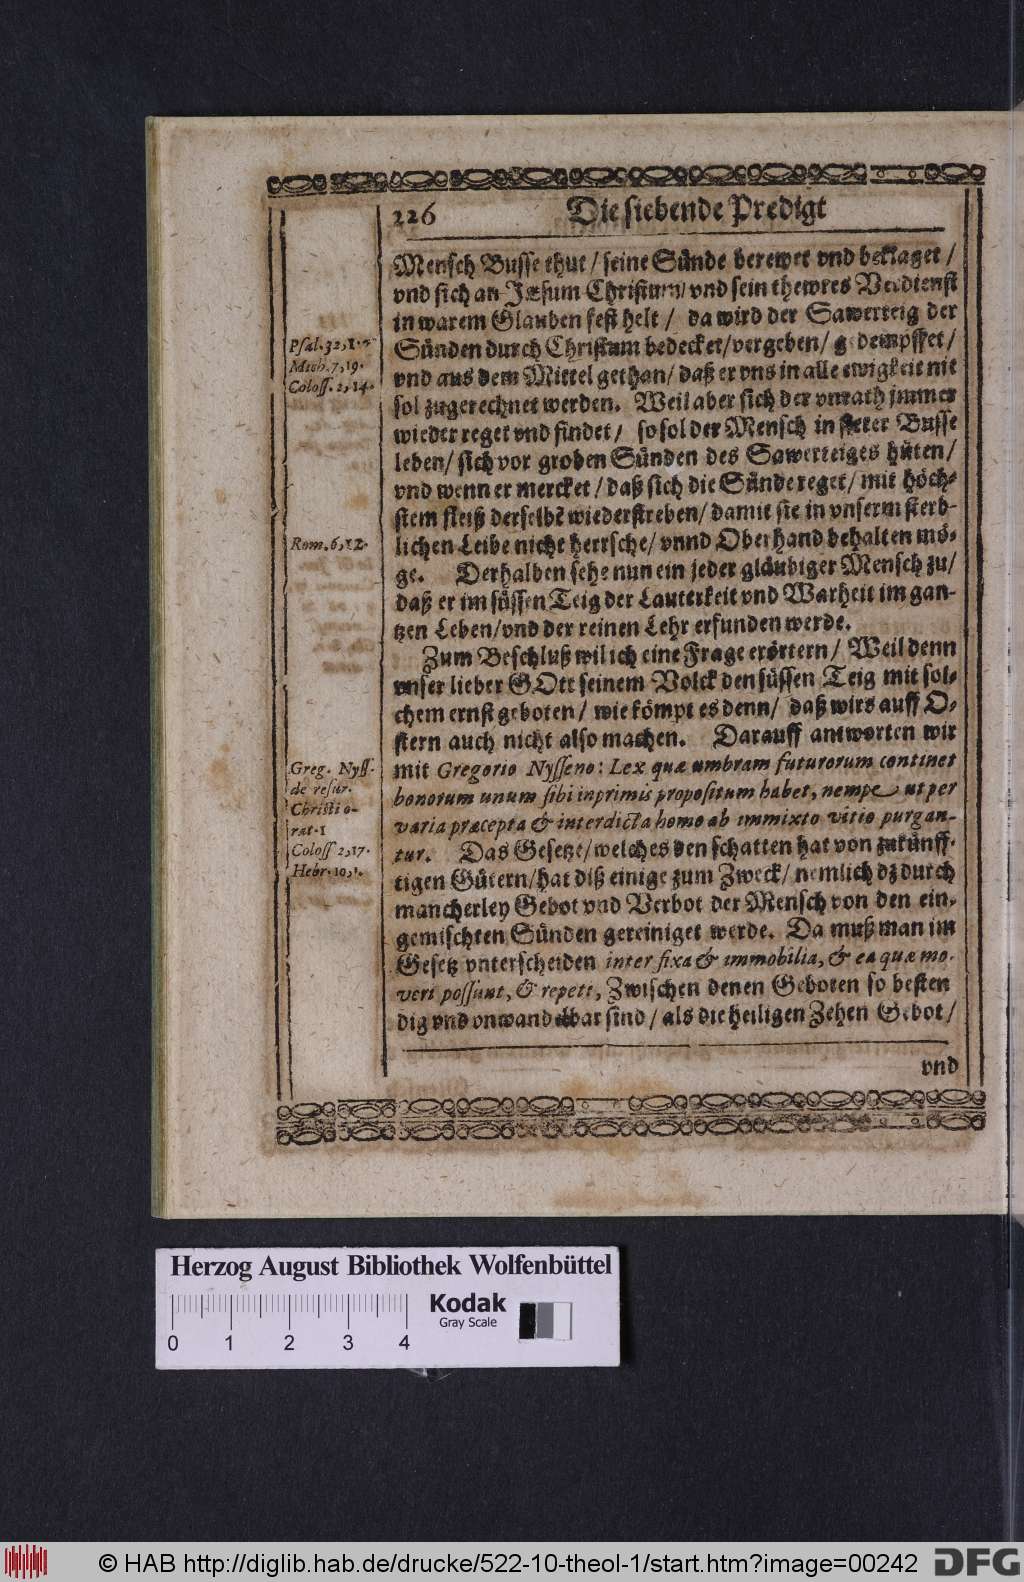 226 Die siebende Predigt
Mensch Busse thut / seine Sünde berewet vnd beklaget /
vnd sich an Jesum Christum / vnd sein thewres Verdienst
in warem Glauben fest helt / da wird der Sawerteig der
Sünden durch Christum bedecket / vergeben / gedempffet /
vnd aus dem Mittel gethan / daß er vns in alle ewigkeit nit
sol zugerechnet werden. Weil aber sich der vnrath jmmer
wieder reget vnd findet / so sol der Mensch in steter Busse
leben / sich vor groben Sünden des Sawerteiges hüten /
vnd wenn er mercket / daß sich die Sünde reget / mit höch-
stem fleiß derselbē wiederstreben / damit sie in vnserm sterb-
lichen Leibe nicht herrsche / vnnd Oberhand behalten mö-
ge. Derhalben sehe nun ein jeder gläubiger Mensch zu /
daß er im süssen Teig der Lauterkeit vnd Warheit im gan-
tzen Leben / vnd der reinen Lehr erfunden werde.
Zum Beschluß wil ich eine Frage erörtern / Weil denn
vnser lieber GOtt seinem Volck den süssen Teig mit sol-
chem ernst geboten / wie kömpt es denn / daß wirs auff O-
stern auch nicht also machen. Darauff antworten wir
mit Gregorio Nysseno: Lex quæ umbram futurorum continet
bonorum unum sibi inprimis propositum habet, nempe ut per
varia præcepta & interdicta homo ab immixto vitio purgan-
tur. Das Gesetze / welches den schatten hat von zukünff-
tigen Gütern / hat diß einige zum Zweck / nemlich dz durch
mancherley Gebot vnd Verbot der Mensch von den ein-
gemischten Sünden gereiniget werde. Da muß man im
Gesetz vnterscheiden inter fixa & immobilia, & ea quæ mo-
veri possunt, & repeti, Zwischen denen Geboten so besten
dig vnd vnwandelbar sind / als die heiligen Zehen Gebot /
vnd
Psal. 32,1.
Mich. 7,19.
Coloss. 2,14.
Rom. 6,12.
Greg. Nyss.
de resur.
Christi o-
rat. 1
Coloss 2,17.
Hebr. 10,1.
Herzog August Bibliothek Wolfenbüttel
Kodak
Gray Scale
0 1 2 3 4
© HAB http://diglib.hab.de/drucke/522-10-theol-1/start.htm?image=00242
DFG